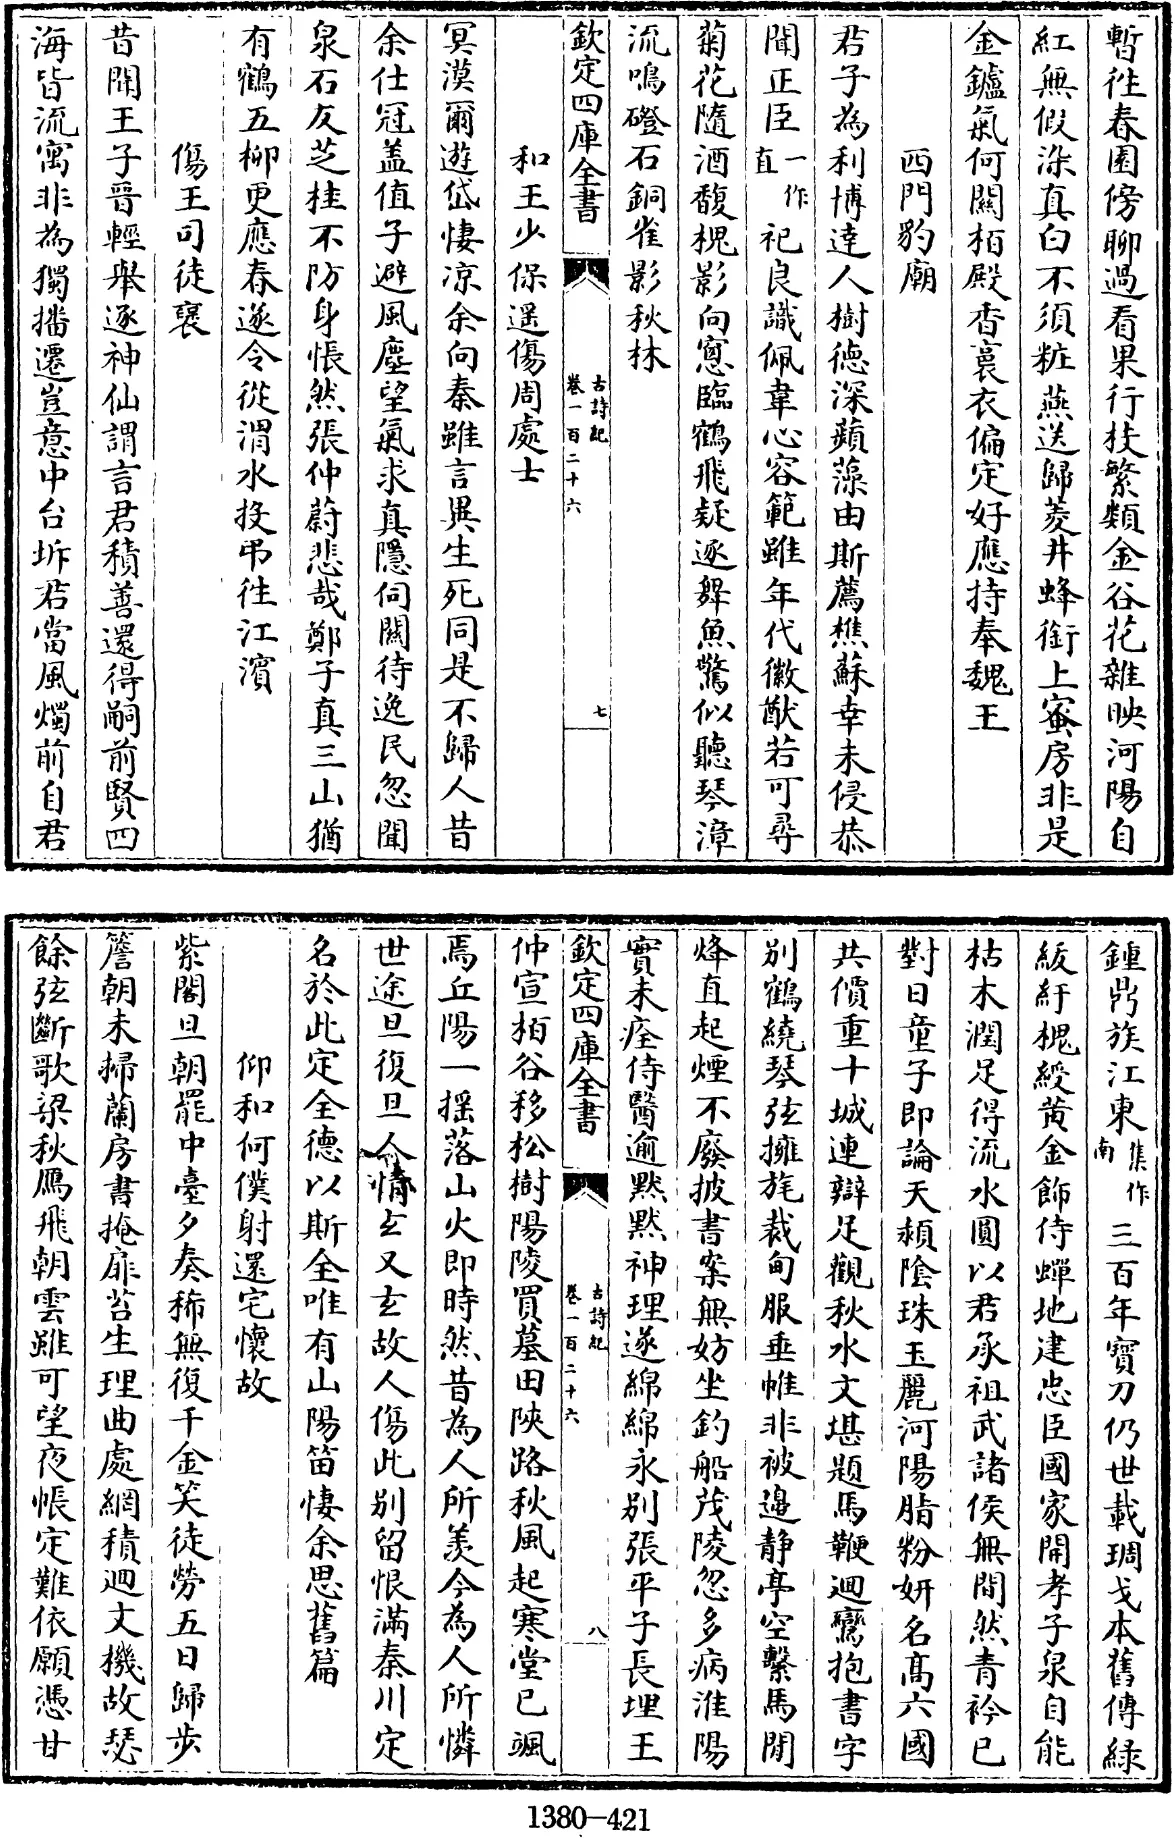 暫往春園傍聊過看果行枝繁類金谷花雜映河陽自
紅無假染真白不須粧燕送歸菱井蜂銜上蜜房非是
金鑪氣何關栢殿香裛衣偏定好應持奉魏王
西門豹廟
君子為利博逹人樹德深蘋藻由斯薦樵蘇幸未侵恭
聞正臣一作直祀良識佩韋心容範雖年代徽猷若可尋
菊花隨酒馥槐影向窻臨鶴飛疑逐舞魚驚似聽琴漳
流鳴磴石銅雀影秋林
欽定四庫全書
古詩紀
卷一百二十六
七
和王少保遥傷周處士
冥漠爾遊岱悽凉余向秦雖言異生死同是不歸人昔
余仕冠盖值子避風塵望氣求真隱伺關待逸民忽聞
泉石友芝桂不防身悵然張仲蔚悲哉鄭子真三山猶
有鶴五柳更應春遂令從渭水投弔往江濱
傷王司徒襃
昔聞王子晉輕舉逐神仙謂言君積善還得嗣前賢四
海皆流寓非為獨播遷豈意中台坼君當風燭前自君
鍾鼎族江東集作南三百年寳刀仍世載琱戈本舊傳緑
紱紆槐綬黄金飾侍蟬地建忠臣國家開孝子泉自能
枯木潤足得流水圓以君承祖武諸侯無間然青衿已
對日童子即論天頴陰珠玉麗河陽脂粉妍名髙六國
共價重十城連辯足觀秋水文堪題馬鞭迴鸞抱書字
别鶴繞琴弦擁旄裁甸服垂帷非被邉静亭空繫馬閒
烽直起煙不廢披書案無妨坐釣船茂陵忽多病淮陽
實未痊侍醫逾默默神理遂綿綿永别張平子長埋王
欽定四庫全書
古詩紀
卷一百二十六
八
仲宣栢谷移松樹陽陵買墓田陜路秋風起寒堂已颯
焉丘陽一揺落山火即時然昔為人所羨今為人所憐
世途旦復旦人情玄又玄故人傷此别留恨滿秦川定
名於此定全德以斯全唯有山陽笛悽余思舊篇
仰和何僕射還宅懷故
紫閣旦朝罷中臺夕奏稀無復千金笑徒勞五日歸步
簷朝未掃蘭房晝掩扉苔生理曲處網積迴文機故瑟
餘弦斷歌梁秋鴈飛朝雲雖可望夜帳定難依願憑甘
1380-421